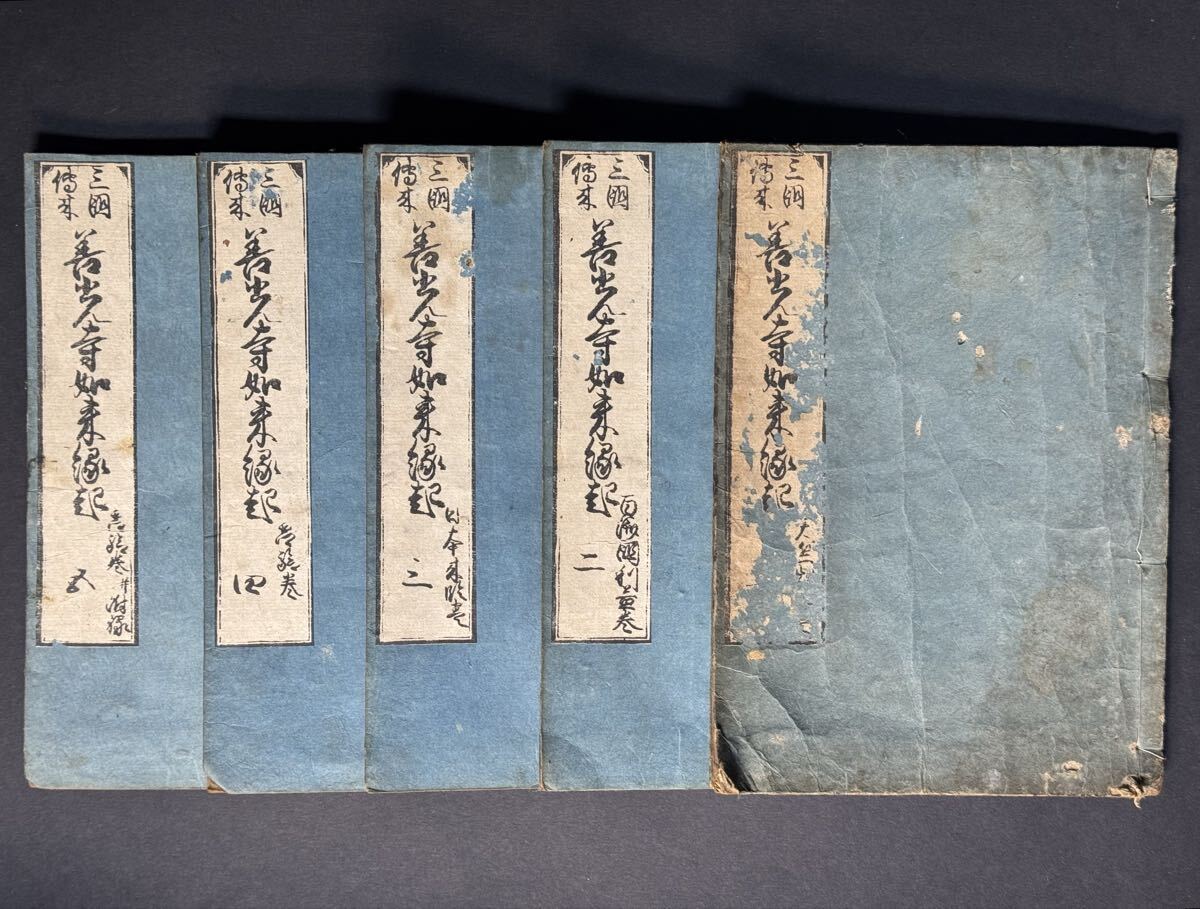 三國
傳来
善光寺如来縁起
三國
傳来
善光寺如来縁起
百濟國利益巻
二
三國
傳来
善光寺如来縁起
日本来臨巻
三
三國
傳来
善光寺如来縁起
巻
四
三國
傳来
善光寺如来縁起
巻并附録
五